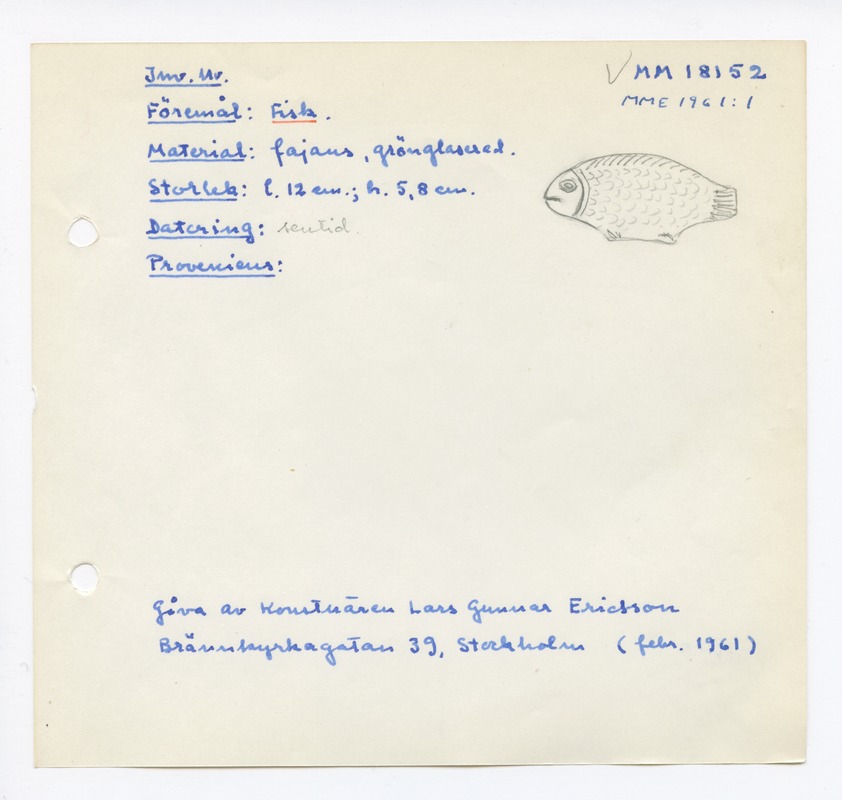 Inv. Nr.
MM 18152
MME 1961:1
Föremål: Fisk.
Material: fajans, grönglaserad.
Storlek: l. 12 cm.; h. 5,8 cm.
Datering: sentid.
Proveniens:
Gåva av Konstnären Lars Gunnar Ericsson
Brännkyrkagatan 39, Stockholm (febr. 1961)